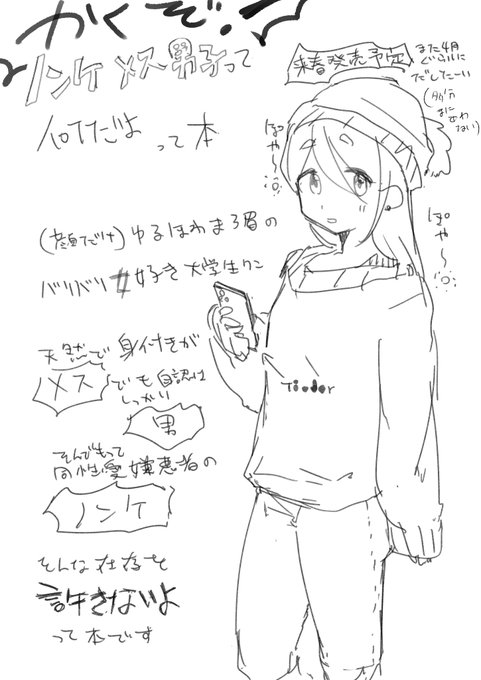 かくぞ!
ノンケメス男子って
何だよって本
来春発売予定
また4月
ぐらいに
だしたーい
(多分
まに
あわ
ない)
ぽや〜
ぽや〜
(顔だけ)ゆるほわまろ眉の
バリバリ女好き大学生クン
天然で身付きが
メス
でも自認は
しっかり
男
そんでもって
同性愛嫌悪者の
ノンケ
そんな存在を
許さないよ
って本です